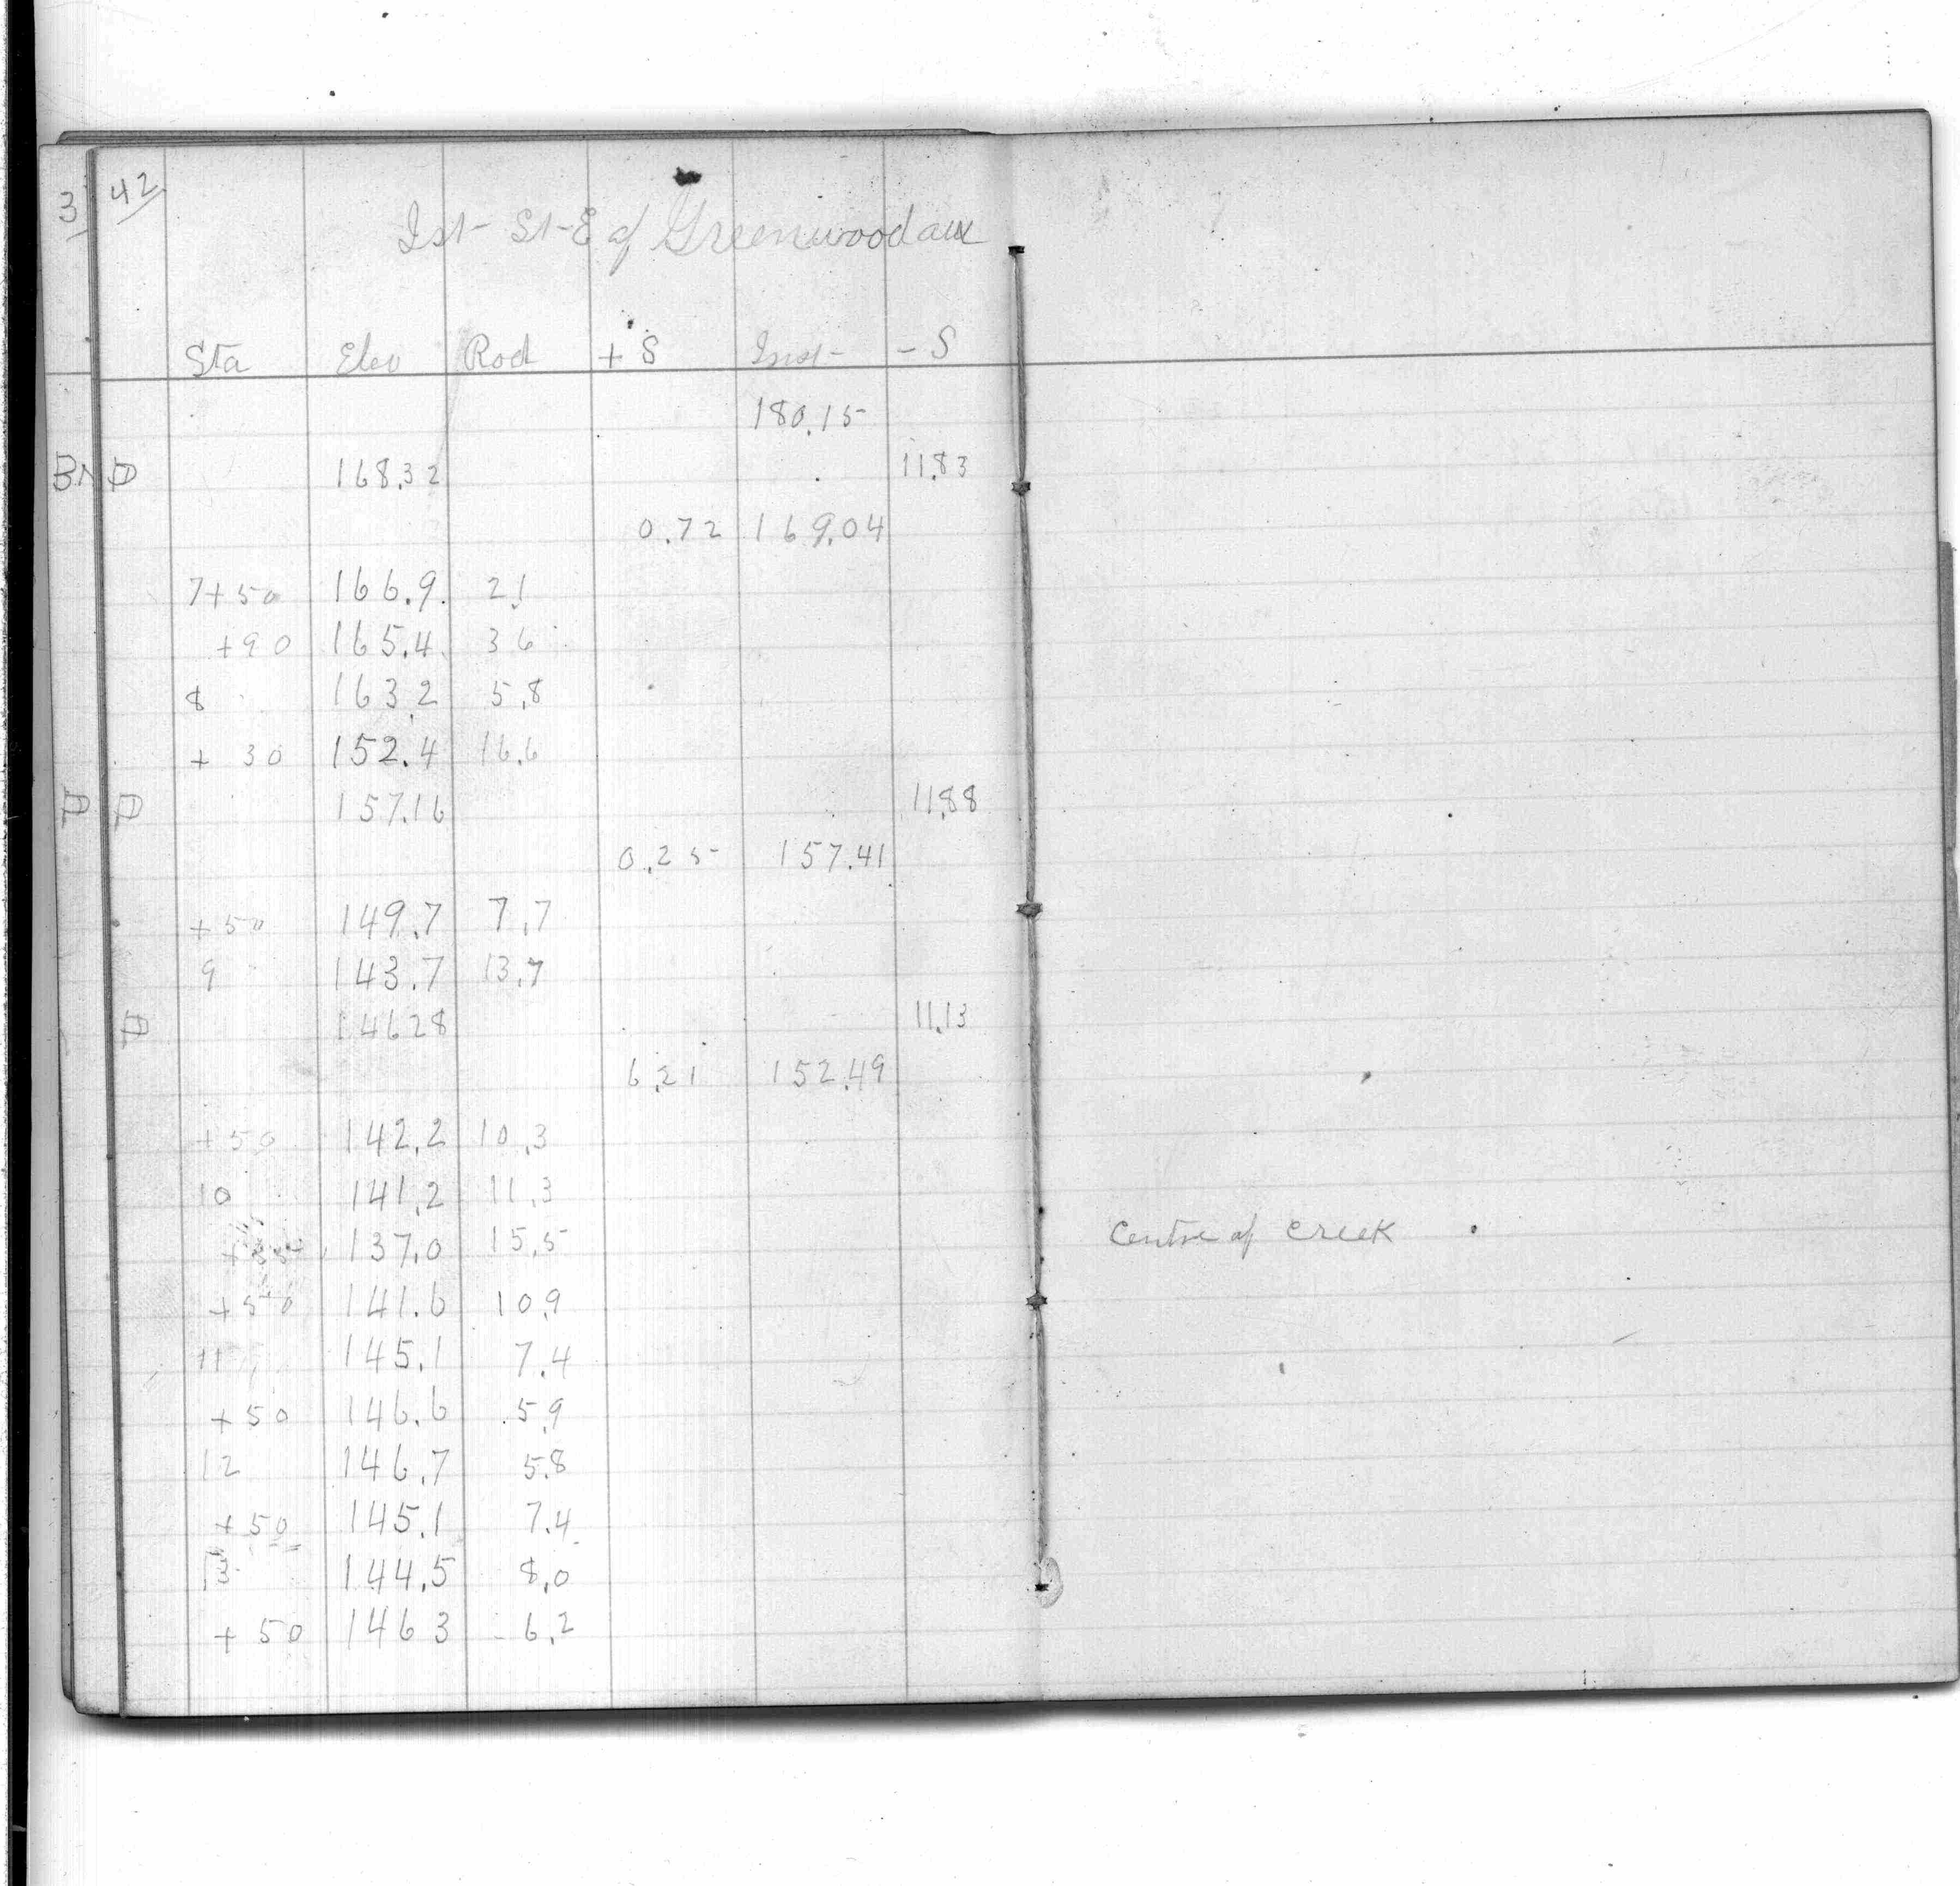 3 42
1st St E of Greenwood ave
Sta Elev Rod + S Inst - S
180.15
168.32 11.83
0.72 169.04
7+50 166.9 2.1
+90 165.4 3 6
8 163.2 5.8
+ 30 152.4 16.6
157.16 11.88
0.25 157.41
+50 149.7 7.7
9 143.7 13.7
146 28 11.13
6.21 152.49
+50 142.2 10.3
10 141.2 11.3
137.0 15.5 Centre of creek
+50 141.6 10.9
11 145.1 7.4
+50 146.6 5.9
12 146.7 5.8
+50 145.1 7.4
13 144.5 8.0
+ 50 146 3 6.2